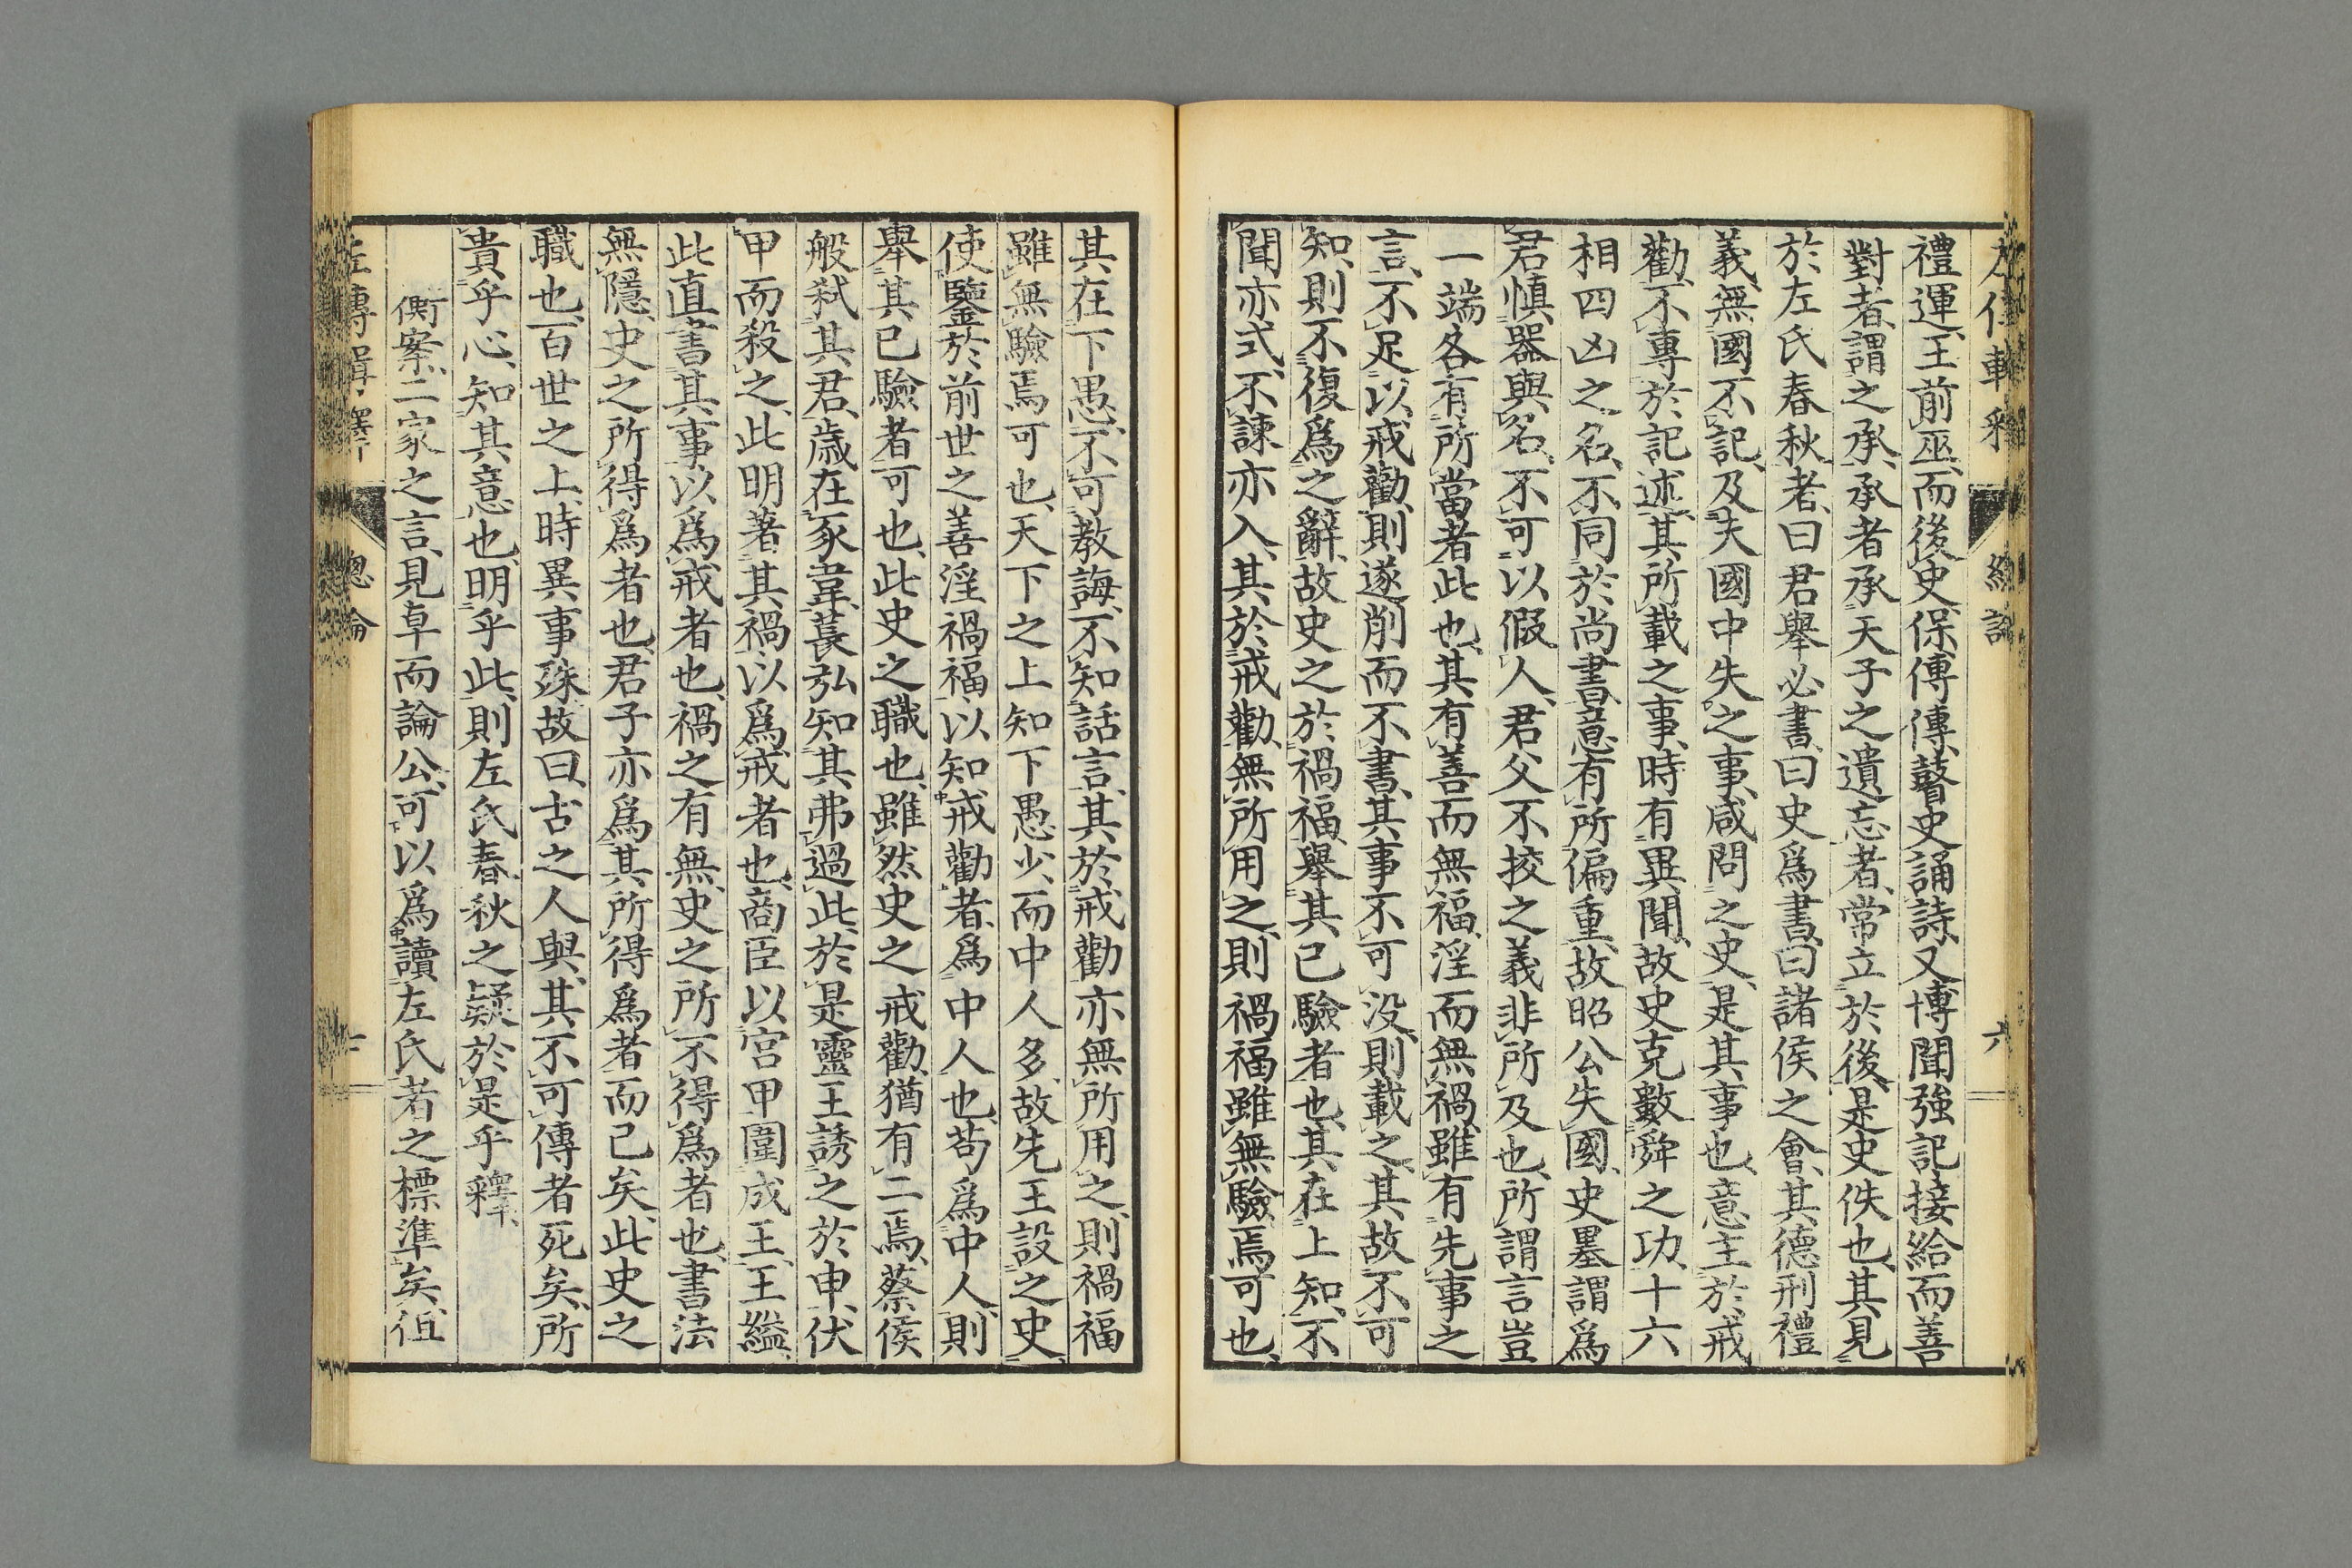 禮運、王前巫、而後史、保傅傳、瞽史誦詩、又博聞強記接給而善
對者、謂之承、承者承天子之遺忘者、常立於後、是史佚也、其見
於左氏春秋者、曰君舉必書、曰史爲書、曰諸侯之會、其德刑禮
義、無國不記、及夫國中失之事、咸問之史、是其事也、意主於戒
勸、不專於記述、其所載之事、時有異聞、故史克數舜之功、十六
相四凶之名、不同於尚書、意有所偏重、故昭公失國、史墨謂爲
君慎器與名、不可以假人、君父不挍之義非所及也、所謂言豈
一端各有所當者此也、其有善而無福、淫而無禍、雖有先事之
言、不足以戒勸、則遂削而不書、其事不可沒、則載之、其故不可
知、則不復爲之辭、故史之於禍福、舉其已驗者也、其在上知、不
聞亦式、不諫亦入、其於戒勸、無所用之、則禍福雖無驗焉可也、
其在下愚、不可教誨、不知話言、其於戒勸亦無所用之、則禍福
雖無驗焉可也、天下之上知下愚少、而中人多、故先王設之史、
使鑒於前世之善淫禍福、以知戒勸者、爲中人也、苟爲中人、則
舉其已驗者可也、此史之職也、雖然史之戒勸、猶有二焉、蔡侯
般弒其君、歲在豕韋、萇弘知其弗過此、於是靈王誘之於申、伏
甲而殺之、此明著其禍以爲戒者也、商臣以宮甲圍成王、王縊、
此直書其事以爲戒者也、禍之有無、史之所不得爲者也、書法
無隱、史之所得爲者也、君子亦爲其所得爲者而已矣、此史之
職也、百世之上、時異事殊、故曰、古之人與、其不可傳者死矣、所
貴乎心、知其意也、明乎此、則左氏春秋之疑於是乎釋、
衡案、二家之言、見卓而論公、可以爲讀左氏者之標準矣、但
左傳輯釋
總論
六